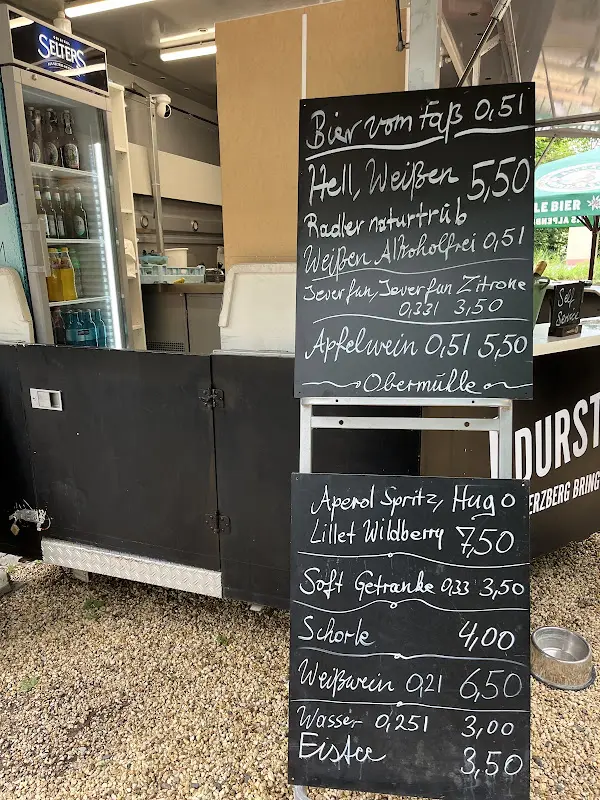 SELTERS
Bier vom Faß 0,5l
Hell, Weißen 5,50
Radler naturtrüb
Weißen Alkoholfrei 0,5l
Jever fun, Jever fun Zitrone
0,33l 3,50
Apfelwein 0,5l 5,50
Obermühle
LE BIER
Self
Service
DURST
ERZBERG BRING
Aperol Spritz, Hugo
Lillet Wildberry 7,50
Soft Getränke 0,33 3,50
Schorle 4,00
Weißwein 0,2l 6,50
Wasser 0,25l 3,00
Eistee 3,50